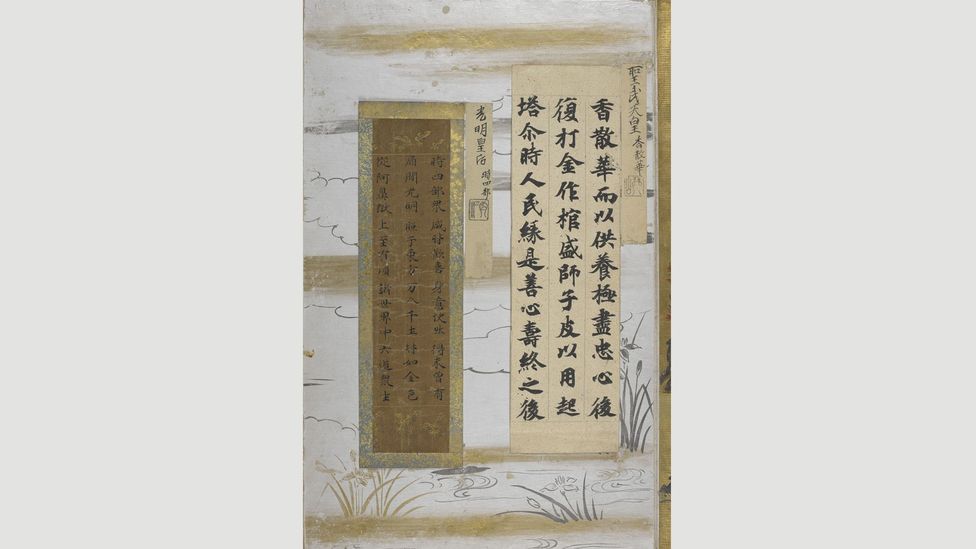 聖武天皇 香散華
香散華而以供養極盡忠心後
復打金作棺盛師子皮以用起
塔尒時人民緣是善心壽終之後
光明皇后 時四部
時四部眾咸皆歡喜身意快然得未曾有
眉間光明照于東方万八千土皆如金色
從阿鼻獄上至有頂諸世界中六道眾生